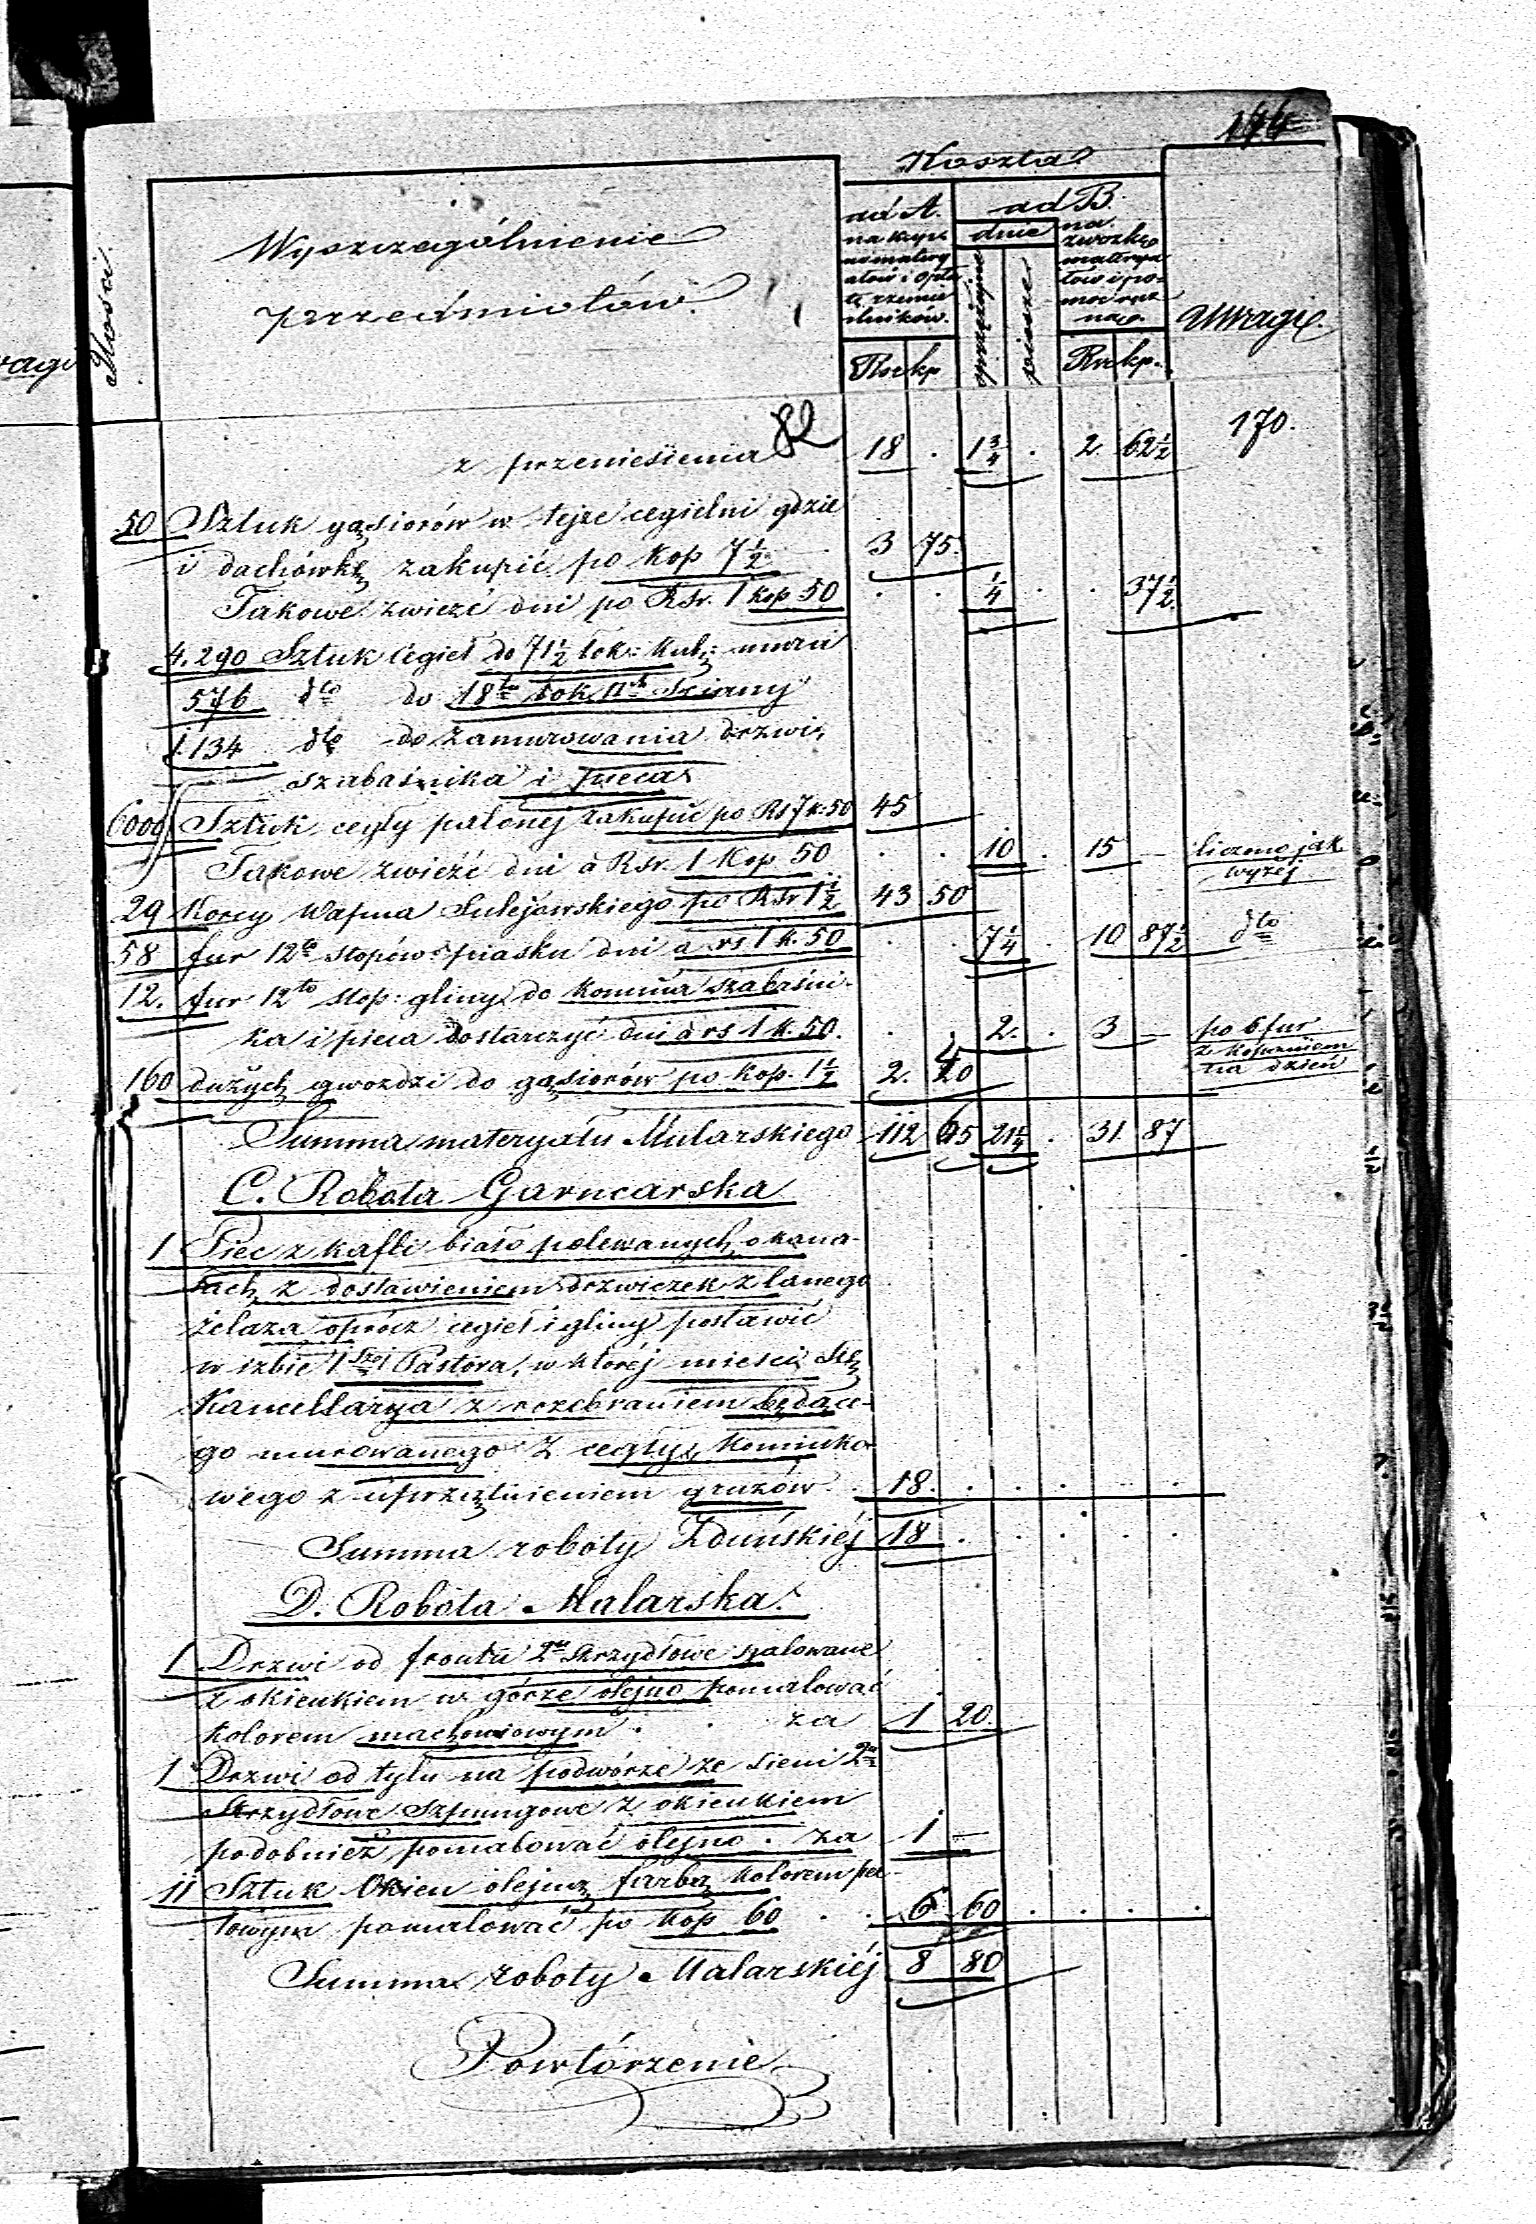 144
Koszta
Ilości
Wyszczególnienie
przedmiotów.
ad A.
na kupno materyałów i opłatę rzemieślników.
ad B.
dnie
sprzężajne
piesze
na zwózkę materyałów i pomoc ręczną.
Uwagi.
Rsr kp
Rsr kp.
82
170.
z przeniesienia 18 . 1 3/4 . 2 62 1/2
50 Sztuk gąsiorów w tejże cegielni gdzie
i dachówkę zakupić po kop 7 1/2 3 75.
Takowe zwieźć dni po RSr. 1 kop 50 . . 1/4 . . 37 1/2.
4.290 Sztuk cegieł do 71 1/2 łok: kub: muru
576 dto do 18tu łok. Sciany
1.134 dto do zamurowania drzwi,
szabaśnika i pieca
6000 Sztuk cegły palonej zakupić po Rs 7 k: 50 45
Takowe zwieźć dni à Rsr. 1 Kop 50 . . 10 . 15 — liczono jak
wyżej
29 Korcy Wapna Sulejowskiego po RSr 1 1/2 43 50
58 fur 12to stopów: piasku dni à rs 1 k. 50 . . 7 1/4 . 10 87 1/2 dto
12. fur 12to stop: gliny do komina szabaśni-
ka i pieca dostarczyć dni à rs 1 k. 50. . . 2. . 3 — po 6 fur
z kopaniem
na dzień
160 dużych gwozdzi do gąsiorów po kop. 1 1/2 2. 40
Summa materyału Mularskiego 112 65 21 1/4 . 31 87
C. Robota Garncarska
1 Piec z kafli biało polewanych o kana-
łach z dostawieniem drzwiczek z lanego
żelaza oprócz cegieł i gliny postawić
w izbie 1szej Pastora, w której mieści Się
Kancellarya z rozebraniem będące-
go murowanego z cegły, kominko-
wego z uprzątnieniem gruzów . 18. . . . . .
Summa roboty Zduńskiéj 18 . . . . .
D. Robota Malarska.
1 Drzwi od frontu 2u Skrzydłowe szalowane
z okienkiem w górze olejno pomalować
kolorem machoniowym . . za 1 20.
1 Drzwi od tyłu na podwórze ze sieni 2u
Skrzydłowe Szpungowe z okienkiem
podobnież pomalować olejno . za 1 —
11 Sztuk Okien olejną farbą kolorem per-
łowym pomalować po kop 60 . . 6 60 . . . .
Summa roboty Malarskiéj 8 80
Powtórzenie